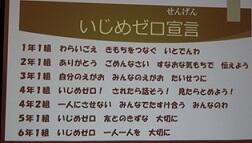 せんげん
いじめゼロ宣言
1年1組 わらいごえ きもちをつなぐ いとでんわ
2年1組 ありがとう ごめんなさい すなおな気もちで 伝えよう
3年1組 自分のえがお みんなのえがお たいせつに
4年1組 いじめゼロ! されたら話そう! 見たらとめよう!
4年2組 一人にさせない みんなでたすけ合う みんなのわ
5年1組 いじめゼロ 友とのきずな 大切に
6年1組 いじめゼロ 一人一人を 大切に